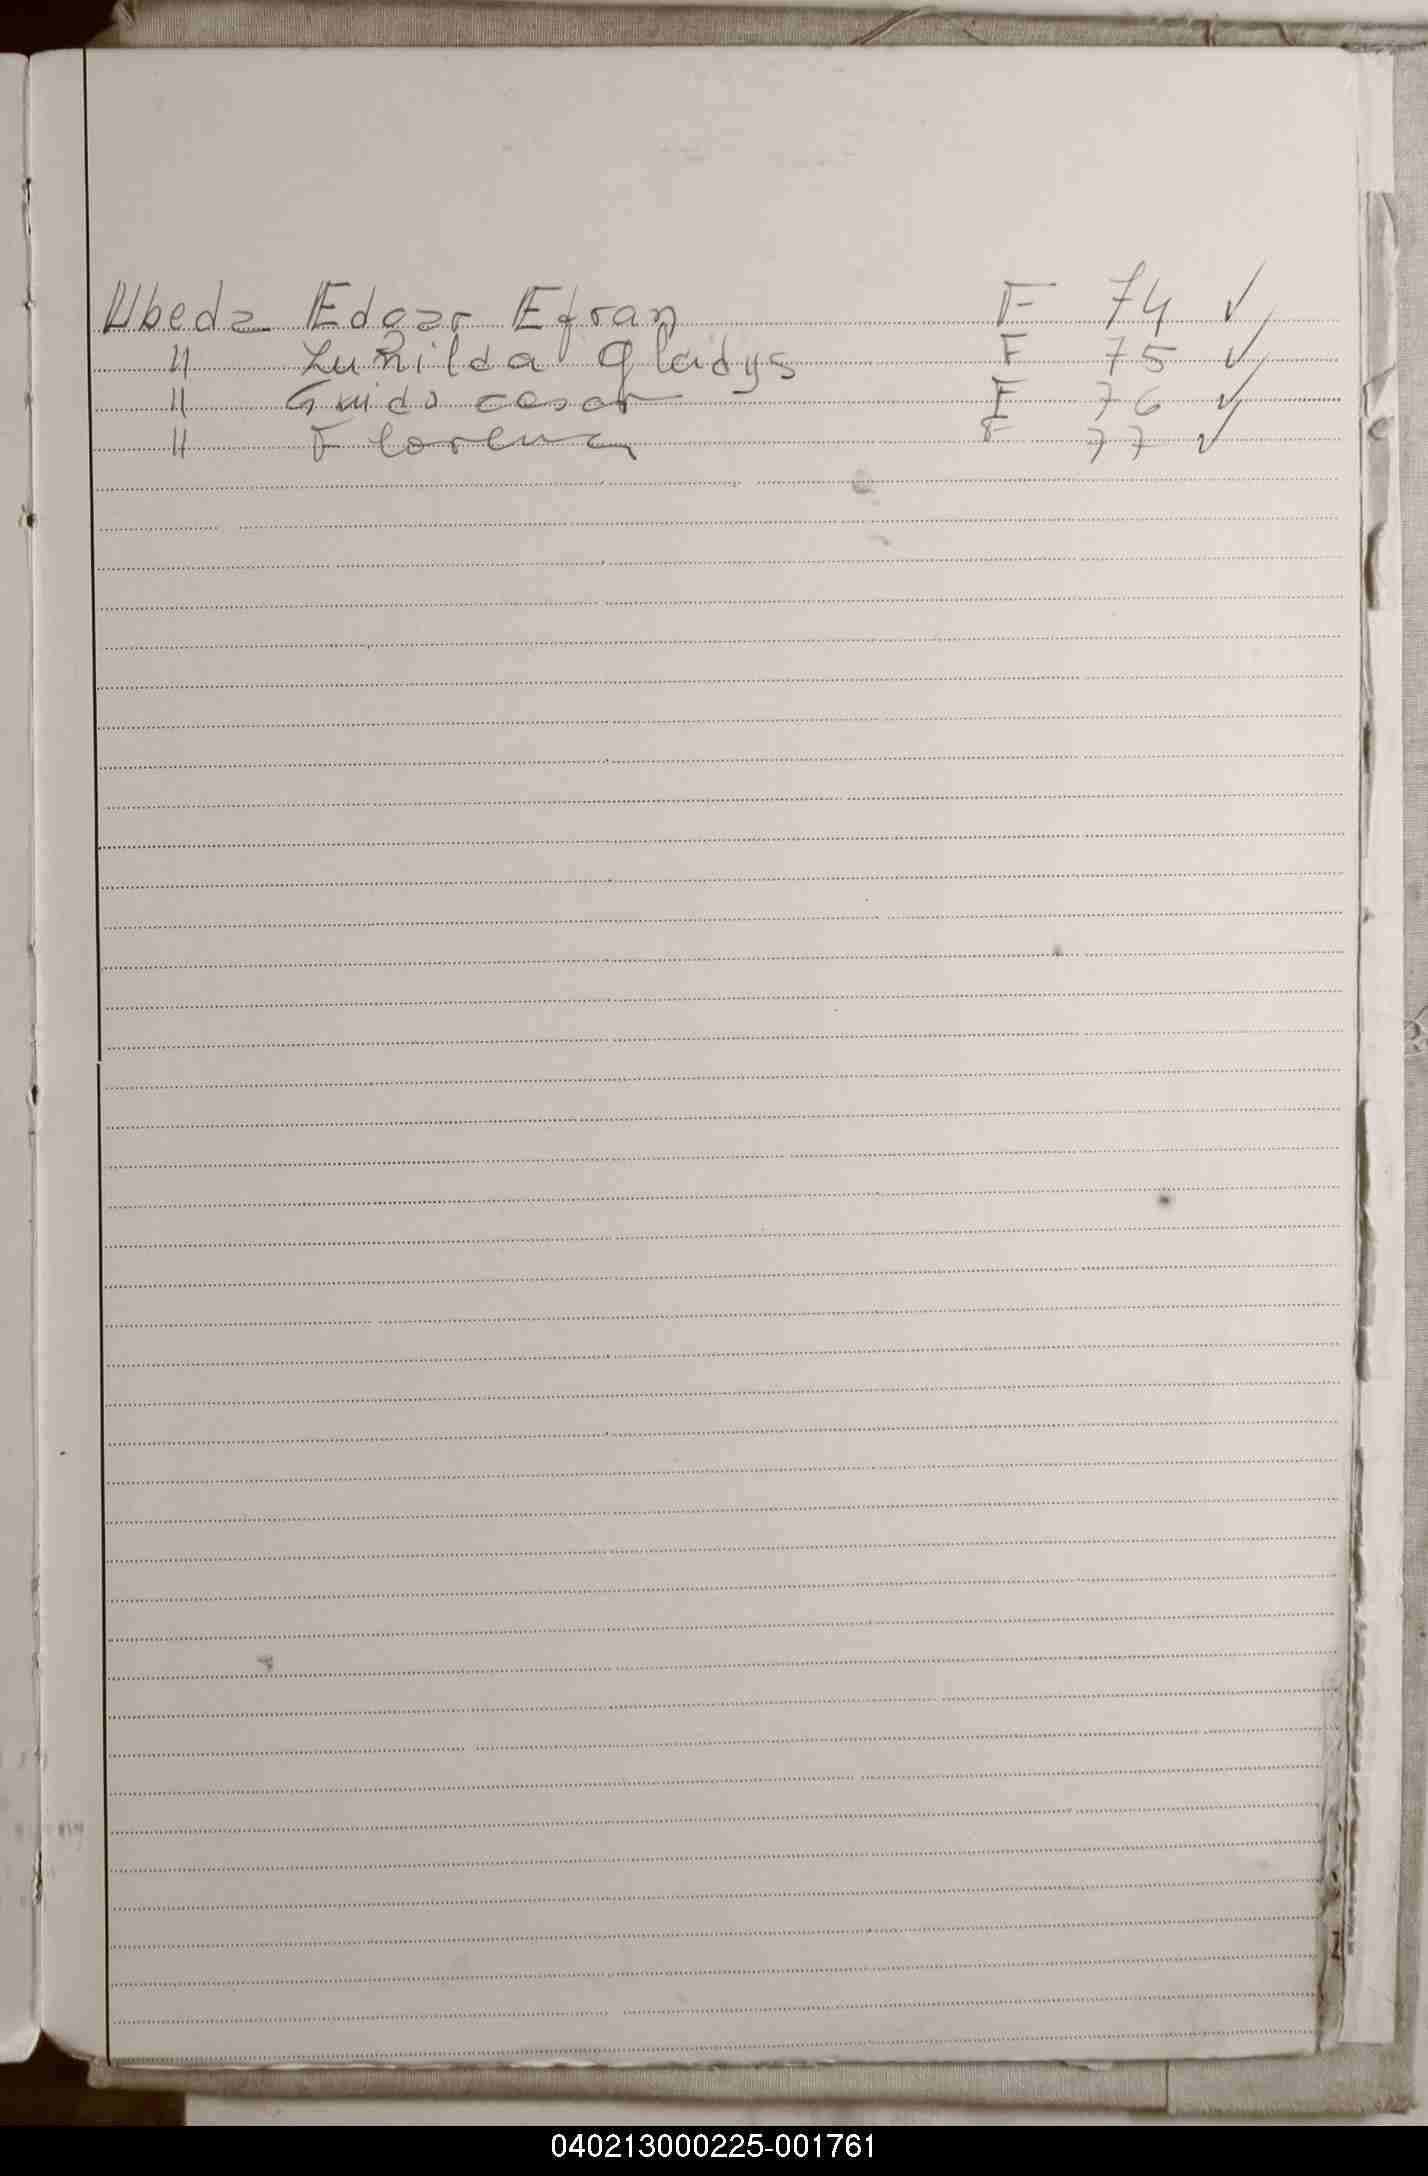 Ubeda Edgar Efran F 74 ✓
" Luhilda Gladys F 75 ✓
" Guido cesar F 76 ✓
" Florencia F 77 ✓
040213000225-001761